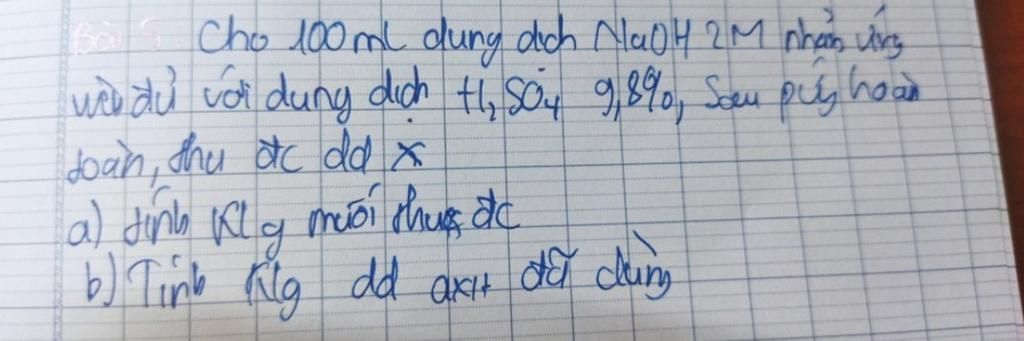 Bài 5. Cho 100 ml dung dịch NaOH 2M phản ứng
vừa đủ với dung dịch H₂SO₄ 9,8%, sau pứ hoàn
toàn, thu đc dd X
a) tính Klg muối thu đc
b) Tính Klg dd axit đã dùng